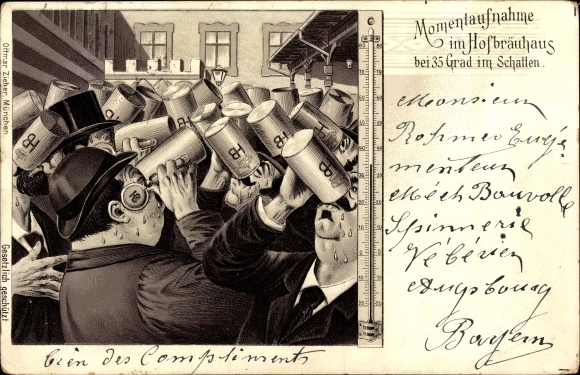 Momentaufnahme
im Hofbräuhaus
bei 35 Grad im Schatten.
Monsieur
Rohmer Eugè-
menteur
Méch Bauvolle
Spinnerie
Vébérien
Augsbourg
Bayern
bien des Compliments
Ottmar Zieher, München.
Gesetzlich geschützt
HB
HB
HB
HB